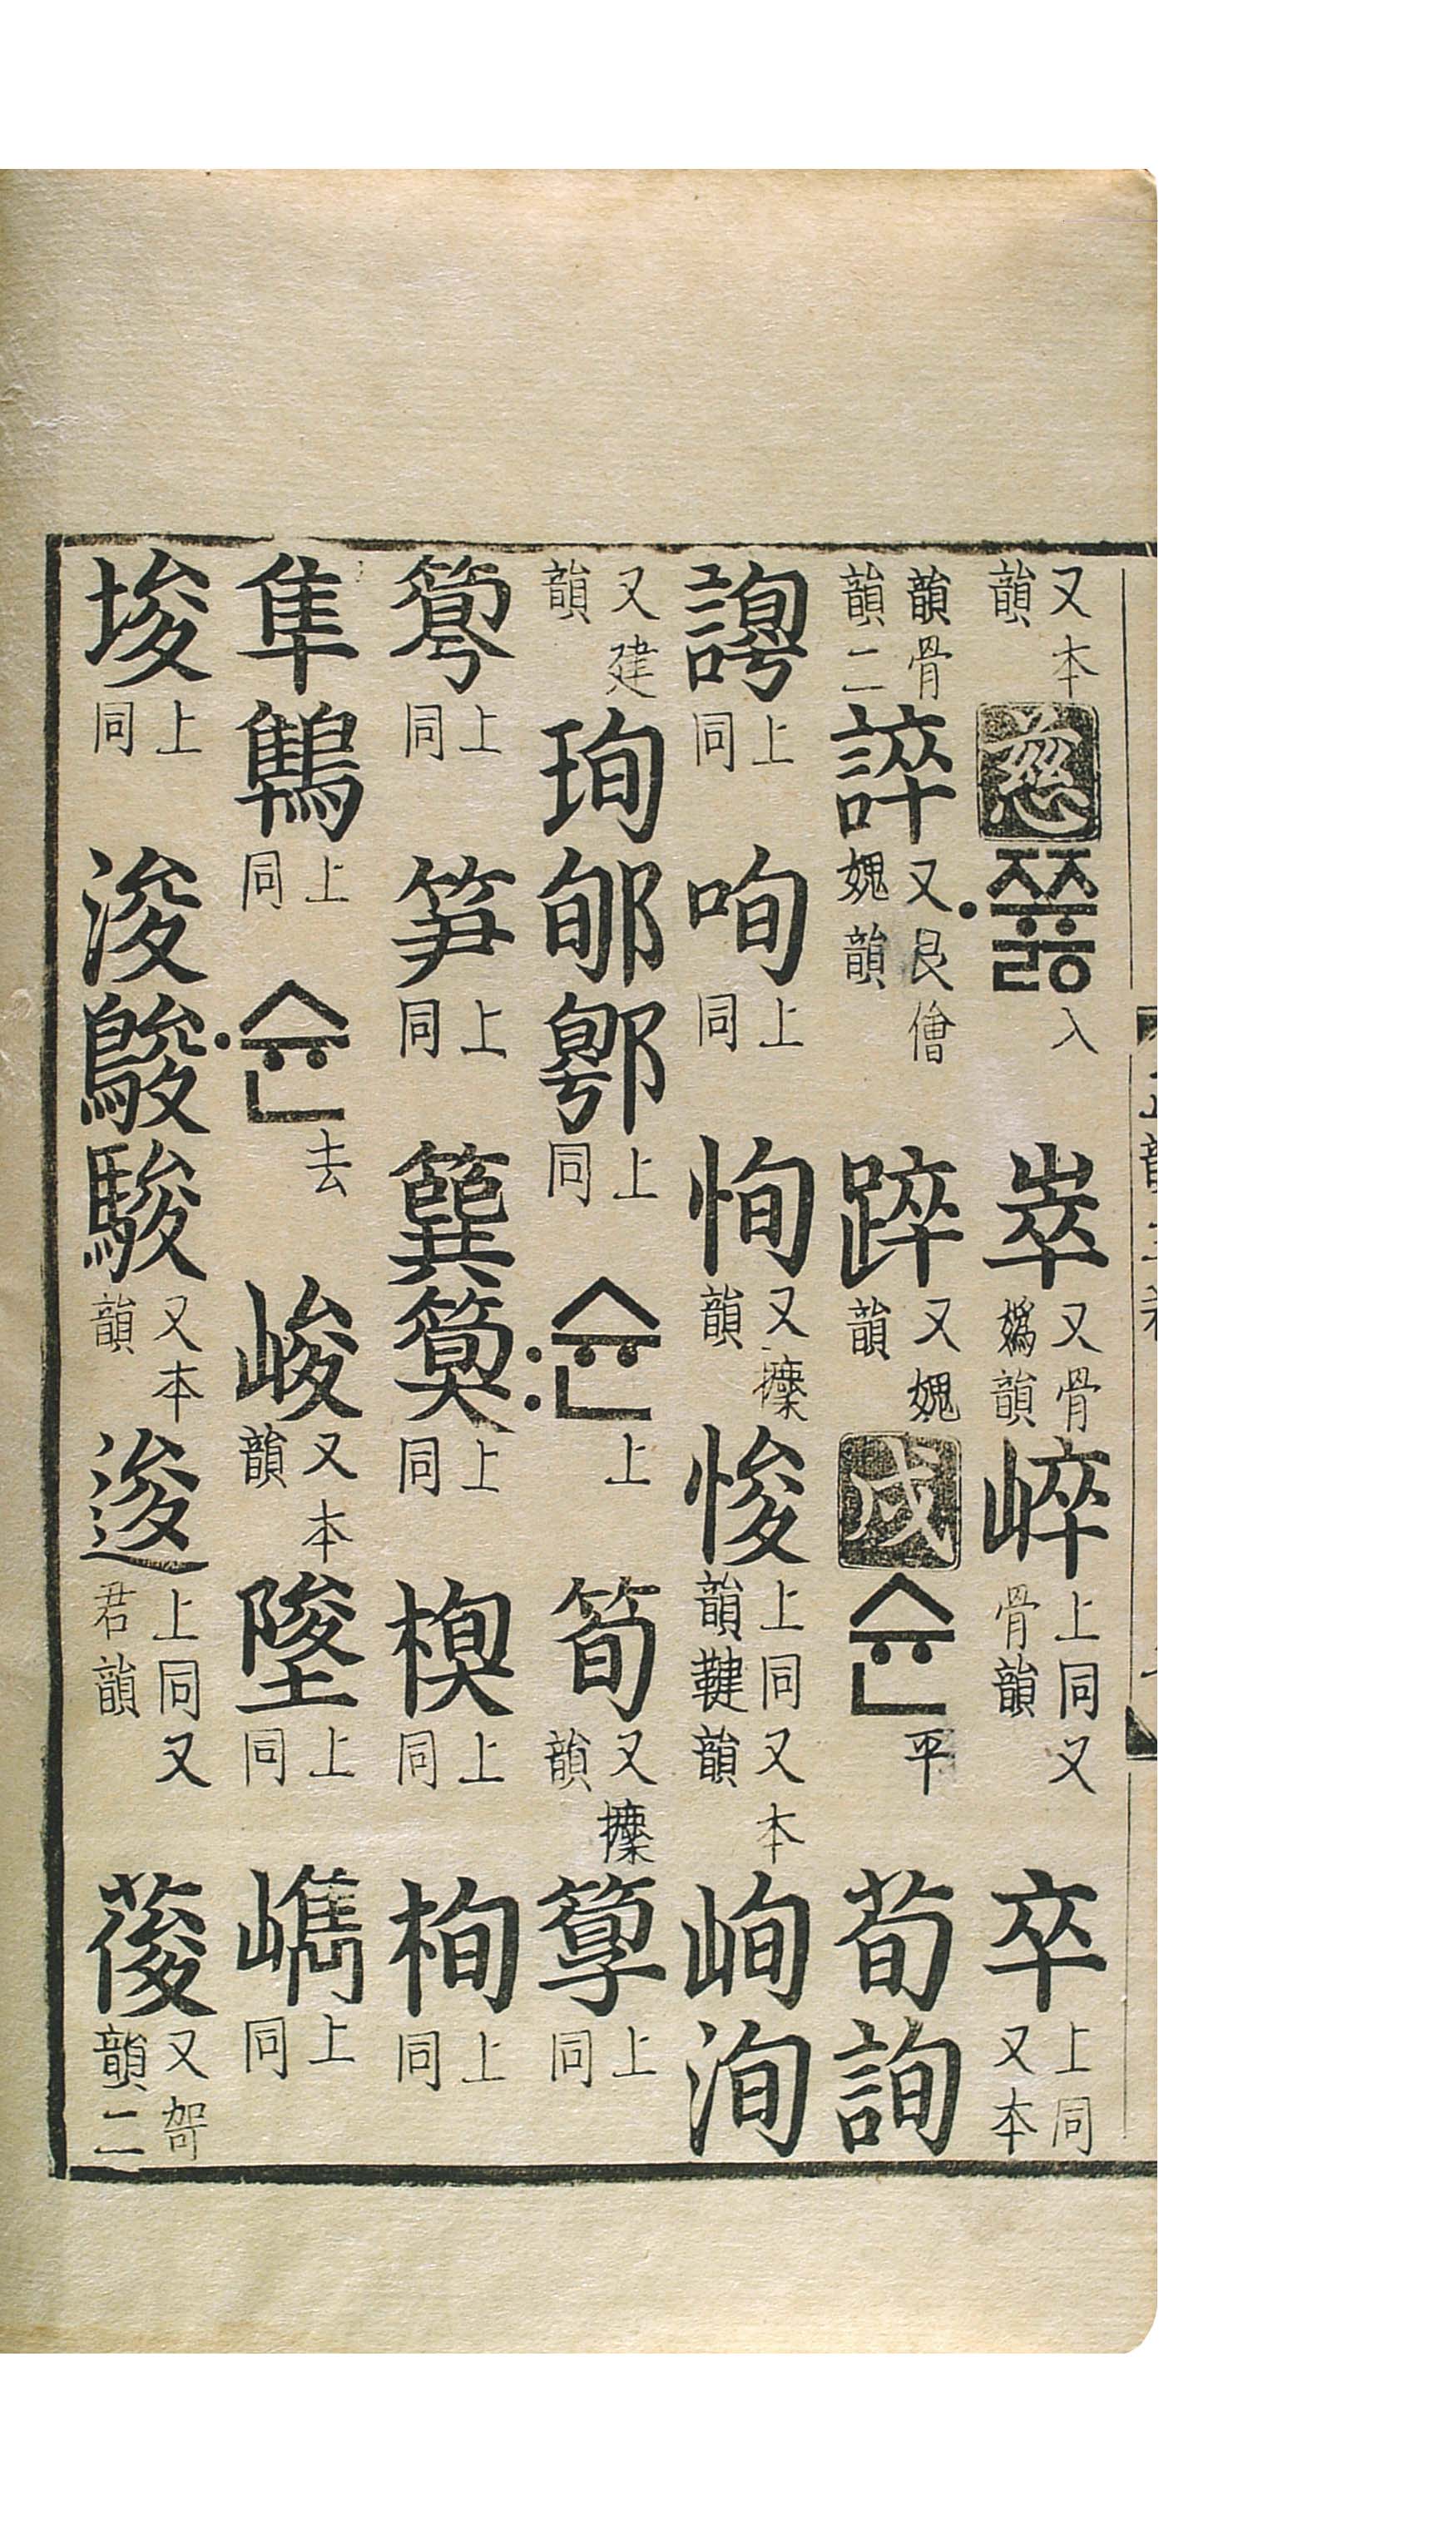 又本韻慈·쭗入崒又骨嬀韻崪上同又骨韻卒上同又本
韻骨韻二誶又艮儈媿韻踤又媿韻戌슌平荀詢
上同咰上同恂又攈韻悛上同又本韻鞬韻峋洵
又建韻珣郇上同:슌上筍又攈韻上同
上同笋上同簨上同上同栒上同
隼鶽上同·슌去峻又本韻上同上同
埈上同浚鵔駿又本韻逡上同又君韻葰又哿韻二